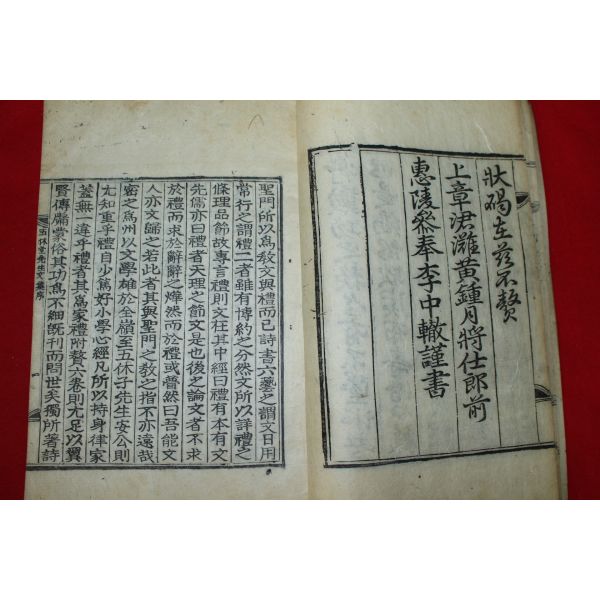 狀碣在玆不贅
上章涒灘黃鍾月將仕郎前
惠陵參奉李中轍謹書
聖門所以爲敎文與禮而已詩書六藝之謂文日用
常行之謂禮二者雖有博約之分然文所以詳禮之
條理品節故專言禮則文在其中經曰禮有本有文
先儒亦曰禮者天理之節文是也後之論文者不求
於禮而求於辭辭之燁然而於禮或瞢然曰吾能文
人亦文歸之若此者其與聖門之敎之指不亦遠哉
密之爲州以文學雄於全嶺至五休子先生安公則
尤知重乎禮自少篤好小學心經凡所以持身律家
蓋無一違乎禮者其爲家禮附贅六卷則尤足以翼
賢傳牖蒙俗其功爲不細旣刊而問世矣獨所著詩
五休堂先生文集序